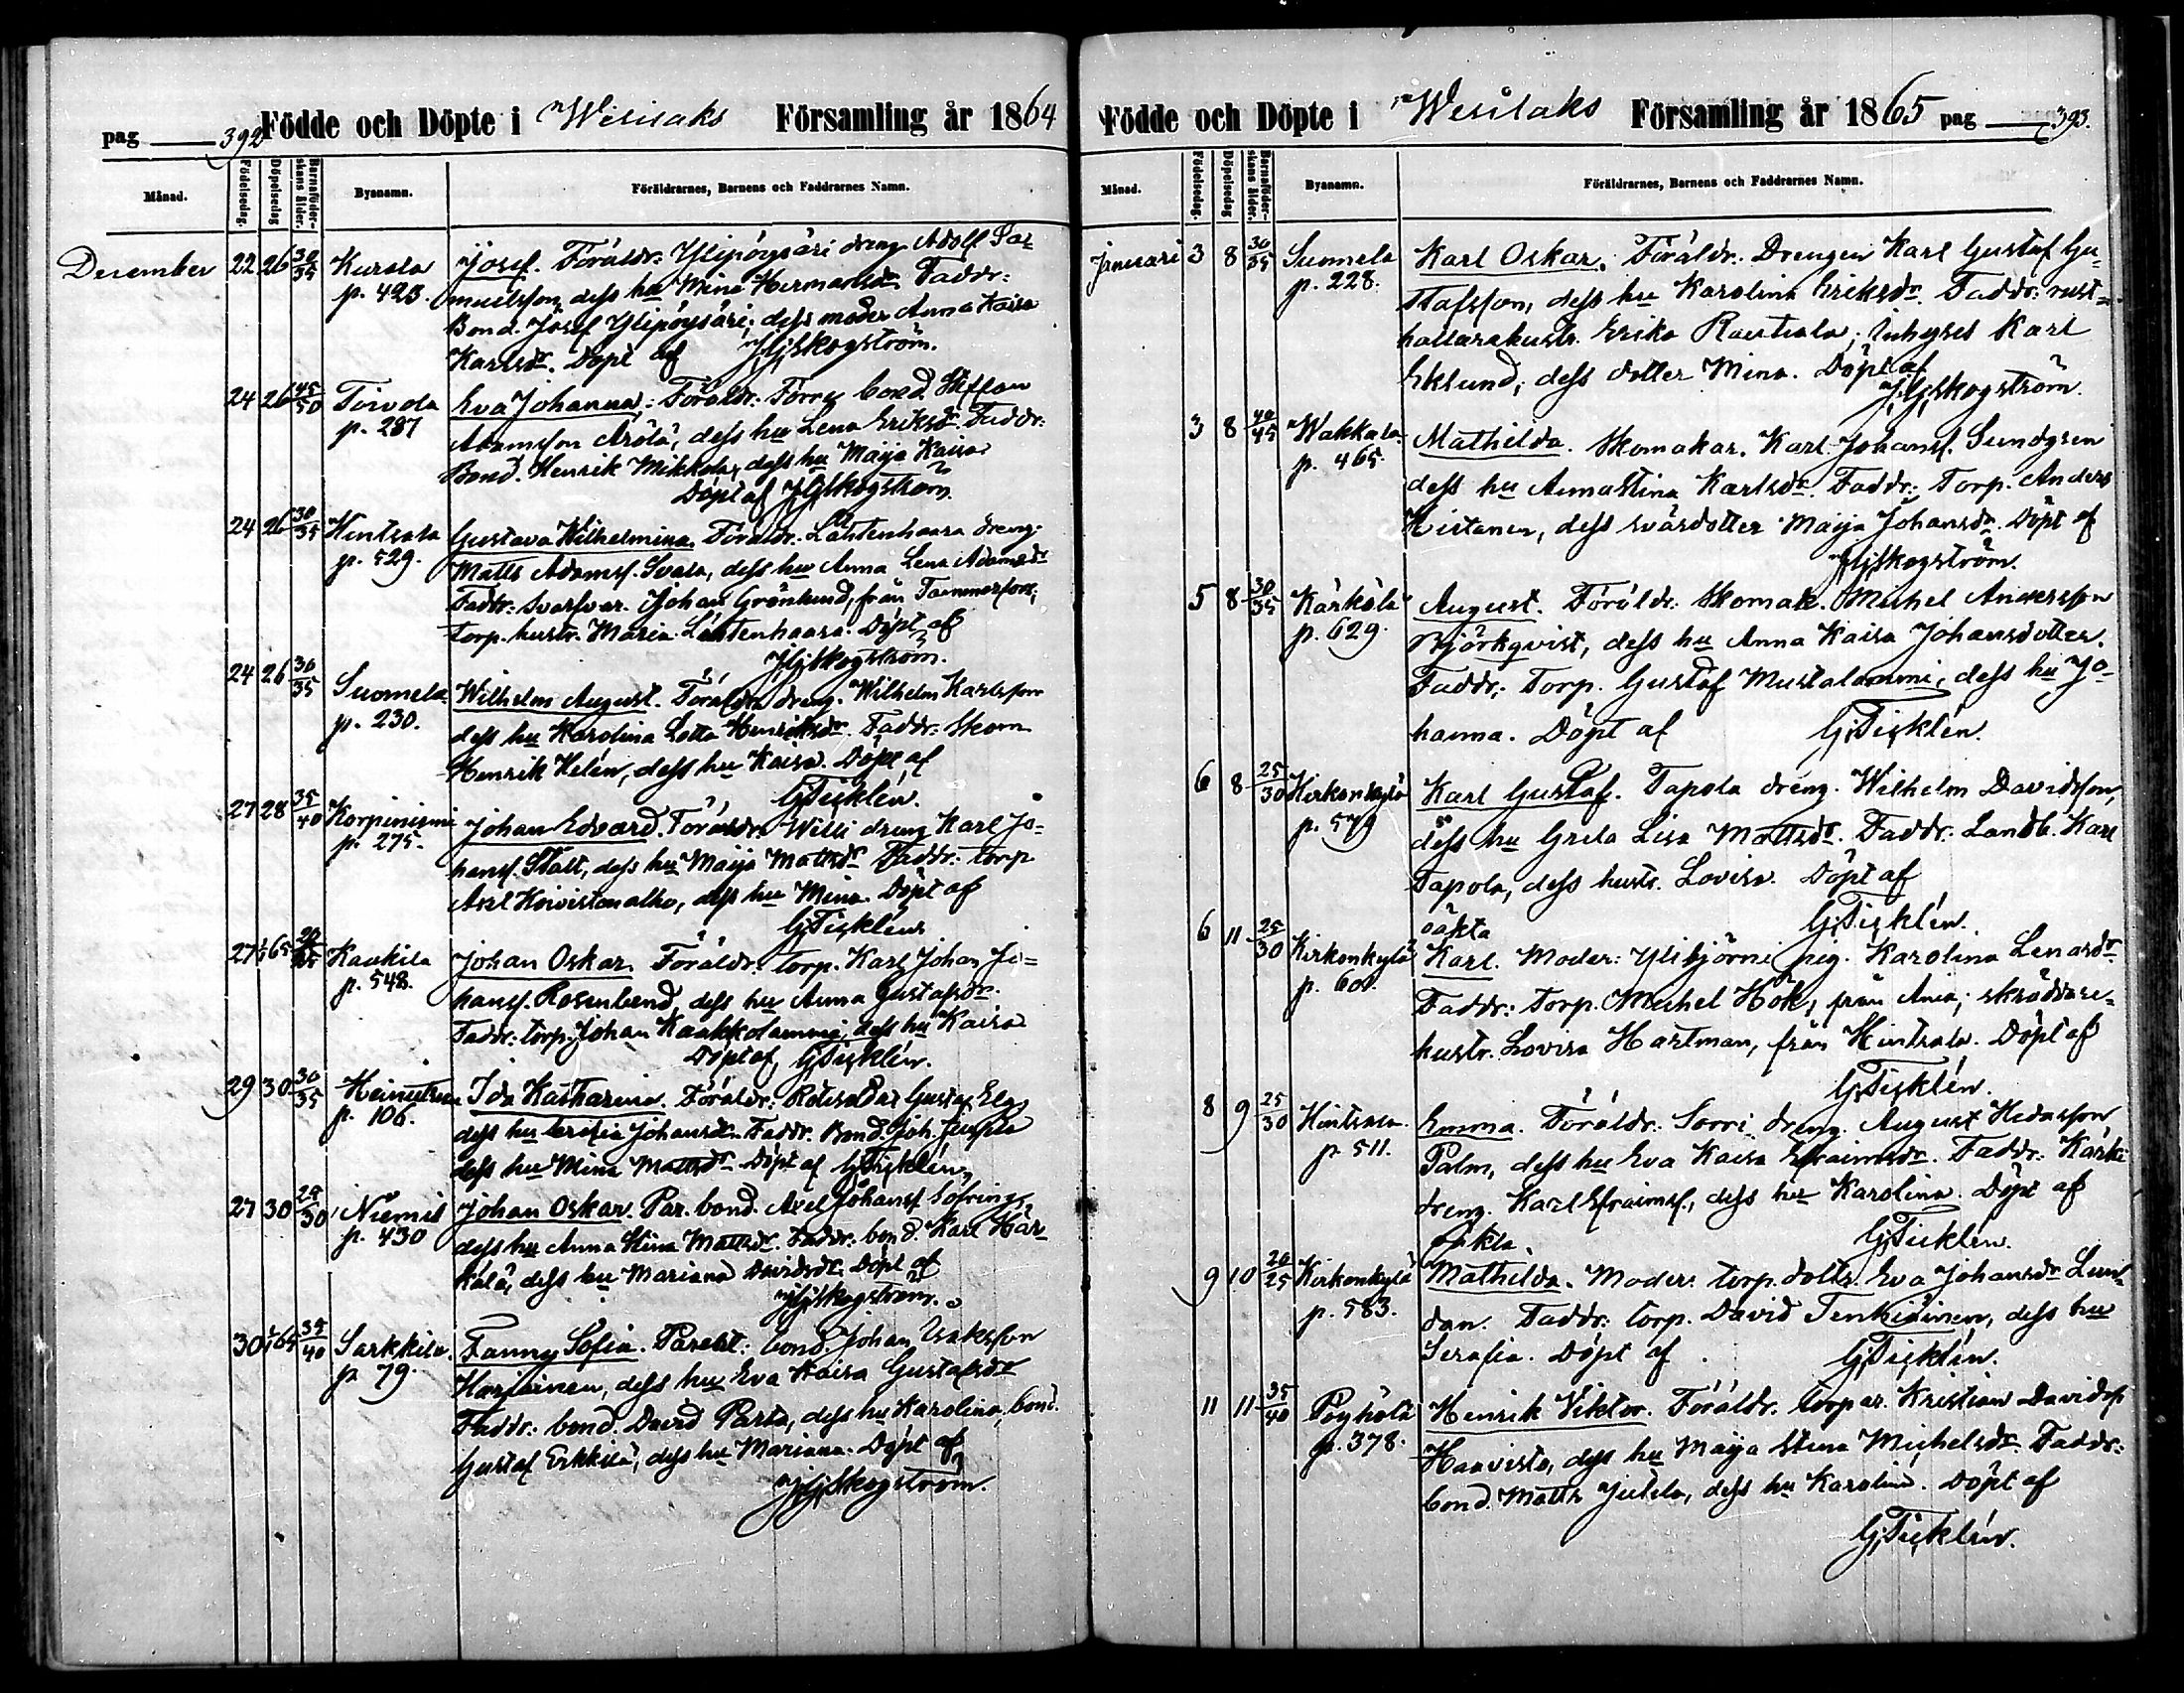 pag 392 Födde och Döpte i Wesilaks Församling år 1864
Månad. Födelsedag. Döpelsedag Barnaföderskans ålder. Byanamn. Föräldrarnes, Barnens och Faddrarnes Namn.
December 22 26 30/35 Kurala Josef. Föräldr: Ylipöysäri dreng Adolf Sa-
p. 423. muelsson, dess hu Mina Hermansdr. Faddr:
Bond. Josef Ylipöysäri; dess moder Anna Kaisa
Karlsdr. Döpt af JHjSkogström.
24 26 45/50 Toivola Eva Johanna. Föräldr: Förre bond. Staffan
p. 287 Adamsson Arölä, dess hu Lena Eriksdr. Faddr:
Bond. Henrik Mikkola, dess hu Maija Kaisa
Döpt af JHjSkogström
24 26 30/35 Hintsala Gustava Wilhelmina. Föräldr. Lahtenhaara dreng.
p. 529. Matts Adamss. Svala, dess hu Anna Lena Adamsdr
Faddr: Svarfvar. Johan Grönlund, från Tammerfors;
torp. hustr. Maria Lahtenhaara. Döpt af
JHjSkogström.
24 26 30/35 Suomela Wilhelm August. Föräldr dreng. Wilhelm Karlsson
p. 230. dess hu Karolina Lotta Henriksdr. Faddr: Skom
Henrik Helén, dess hu Kaisa. Döpt af
GTicklén.
27 28 35/40 Korpiniemi Johan Edvard. Föräldr: Willi dreng Karl Jo-
p. 275. hanss. Stålt, dess hu Maija Mattsdr Faddr: torp
Axel Koivistonalho, dess hu Mina. Döpt af
GTicklén
27 1/1 65 Kaukila Johan Oskar. Föräldr: torp. Karl Johan Jo-
p. 548. hanss. Rosenlund, dess hu Anna Gustafsdr.
Faddr: torp. Johan Kaakkolammi, dess hu Kaisa
Döpt af GTicklén.
29 30 30/35 Ida Katharina. Föräldr: Gustaf Elg
p. 106. dess hu Serafia Johansdr. Faddr. Bond. Joh.
dess hu Mina Mattsdr. Döpt af GTicklén
27 30 Niemis Johan Oskar. Par. bond. Axel Johanss Löfring
p. 430 dess hu Anna Stina Mattsdr. Faddr: bond. Karl Här-
kälä, dess hu Mariana Davidsdr. Döpt af
JHjSkogström.
30 1/1 65 Sarkkila. Fanny Sofia. Parent: bond. Johan Isaksson
p. 79. Harjainen, dess hu Eva Kaisa Gustafsdr
Faddr: bond. David Parta, dess hu Karolina, bond.
Gustaf Erkkilä, dess hu Mariana. Döpt af
JHjSkogström.
Födde och Döpte i Wesilaks Församling år 1865 pag 393.
Månad. Födelsedag. Döpelsedag Barnaföderskans ålder. Byanamn. Föräldrarnes, Barnens och Faddrarnes Namn.
Januari 3 8 30/35 Suomela Karl Oskar. Föräldr. Drengen Karl Gustaf Gu-
p. 228. stafsson, dess hu Karolina Eriksdr. Faddr: rust-
hållarehustr. Erika Rautiala; Inhyses Karl
Eklund, dess dotter Mina. Döpt af
JHjSkogström.
3 8 40/45 Wakkala Mathilda. Skomakar. Karl Johanss. Sundgren
p. 465. dess hu Annastina Karlsdr. Faddr: Torp. Anders
Hietanen, dess svärdotter Maija Johansdr. Döpt af
JHjSkogström.
5 8 30/35 Kärkölä August. Föräldr: Skomak. Michel Andersson
p. 629. Björkqvist, dess hu Anna Kaisa Johansdotter.
Faddr: Torp. Gustaf Mustalammi, dess hu Jo-
hanna. Döpt af GTicklén.
6 8 25/30 Kirkonkylä Karl Gustaf. Tapola dreng. Wilhelm Davidsson,
p. 579 dess hu Greta Lisa Mattsdr. Faddr: Landb. Karl
Tapola, dess hustr. Lovisa. Döpt af
GTicklén.
oäkta
6 11 25/30 Kirkonkylä Karl. Moder: Ylibjörni pig. Karolina Lenasdr
p. 601. Faddr: Torp. Michel Hök, från Ania; skräddare-
hustr. Lovisa Hartman, från Hintsala. Döpt af
GTicklén.
8 9 25/30 Hintsala. Emma. Föräldr: Sorri dreng. August Hedasson
p. 511. Palm, dess hu Eva Kaisa Efraimsdr. Faddr: Kärki
dreng. Karl Efraimss., dess hu Karolina. Döpt af
GTicklén.
oäkta.
9 10 20/25 Kirkonkylä Mathilda. Moder: torp. dottr. Eva Johansdr Lun-
p. 583. dan. Faddr: torp. David Tenkiäinen, dess hu
Serafia. Döpt af GTicklén.
11 11 35/40 Pöyhölä Henrik Viktor. Föräldr. torpar. Kristian Davidss
p. 378. Haavisto, dess hu Maija Stina Michelsdr. Faddr:
bond. Matts Jutila, dess hu Karolina. Döpt af
GTicklén.